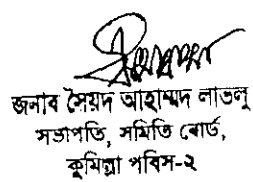 জনাব সৈয়দ আহাম্মদ লাভলু
সভাপতি, সমিতি বোর্ড,
কুমিল্লা পবিস-২